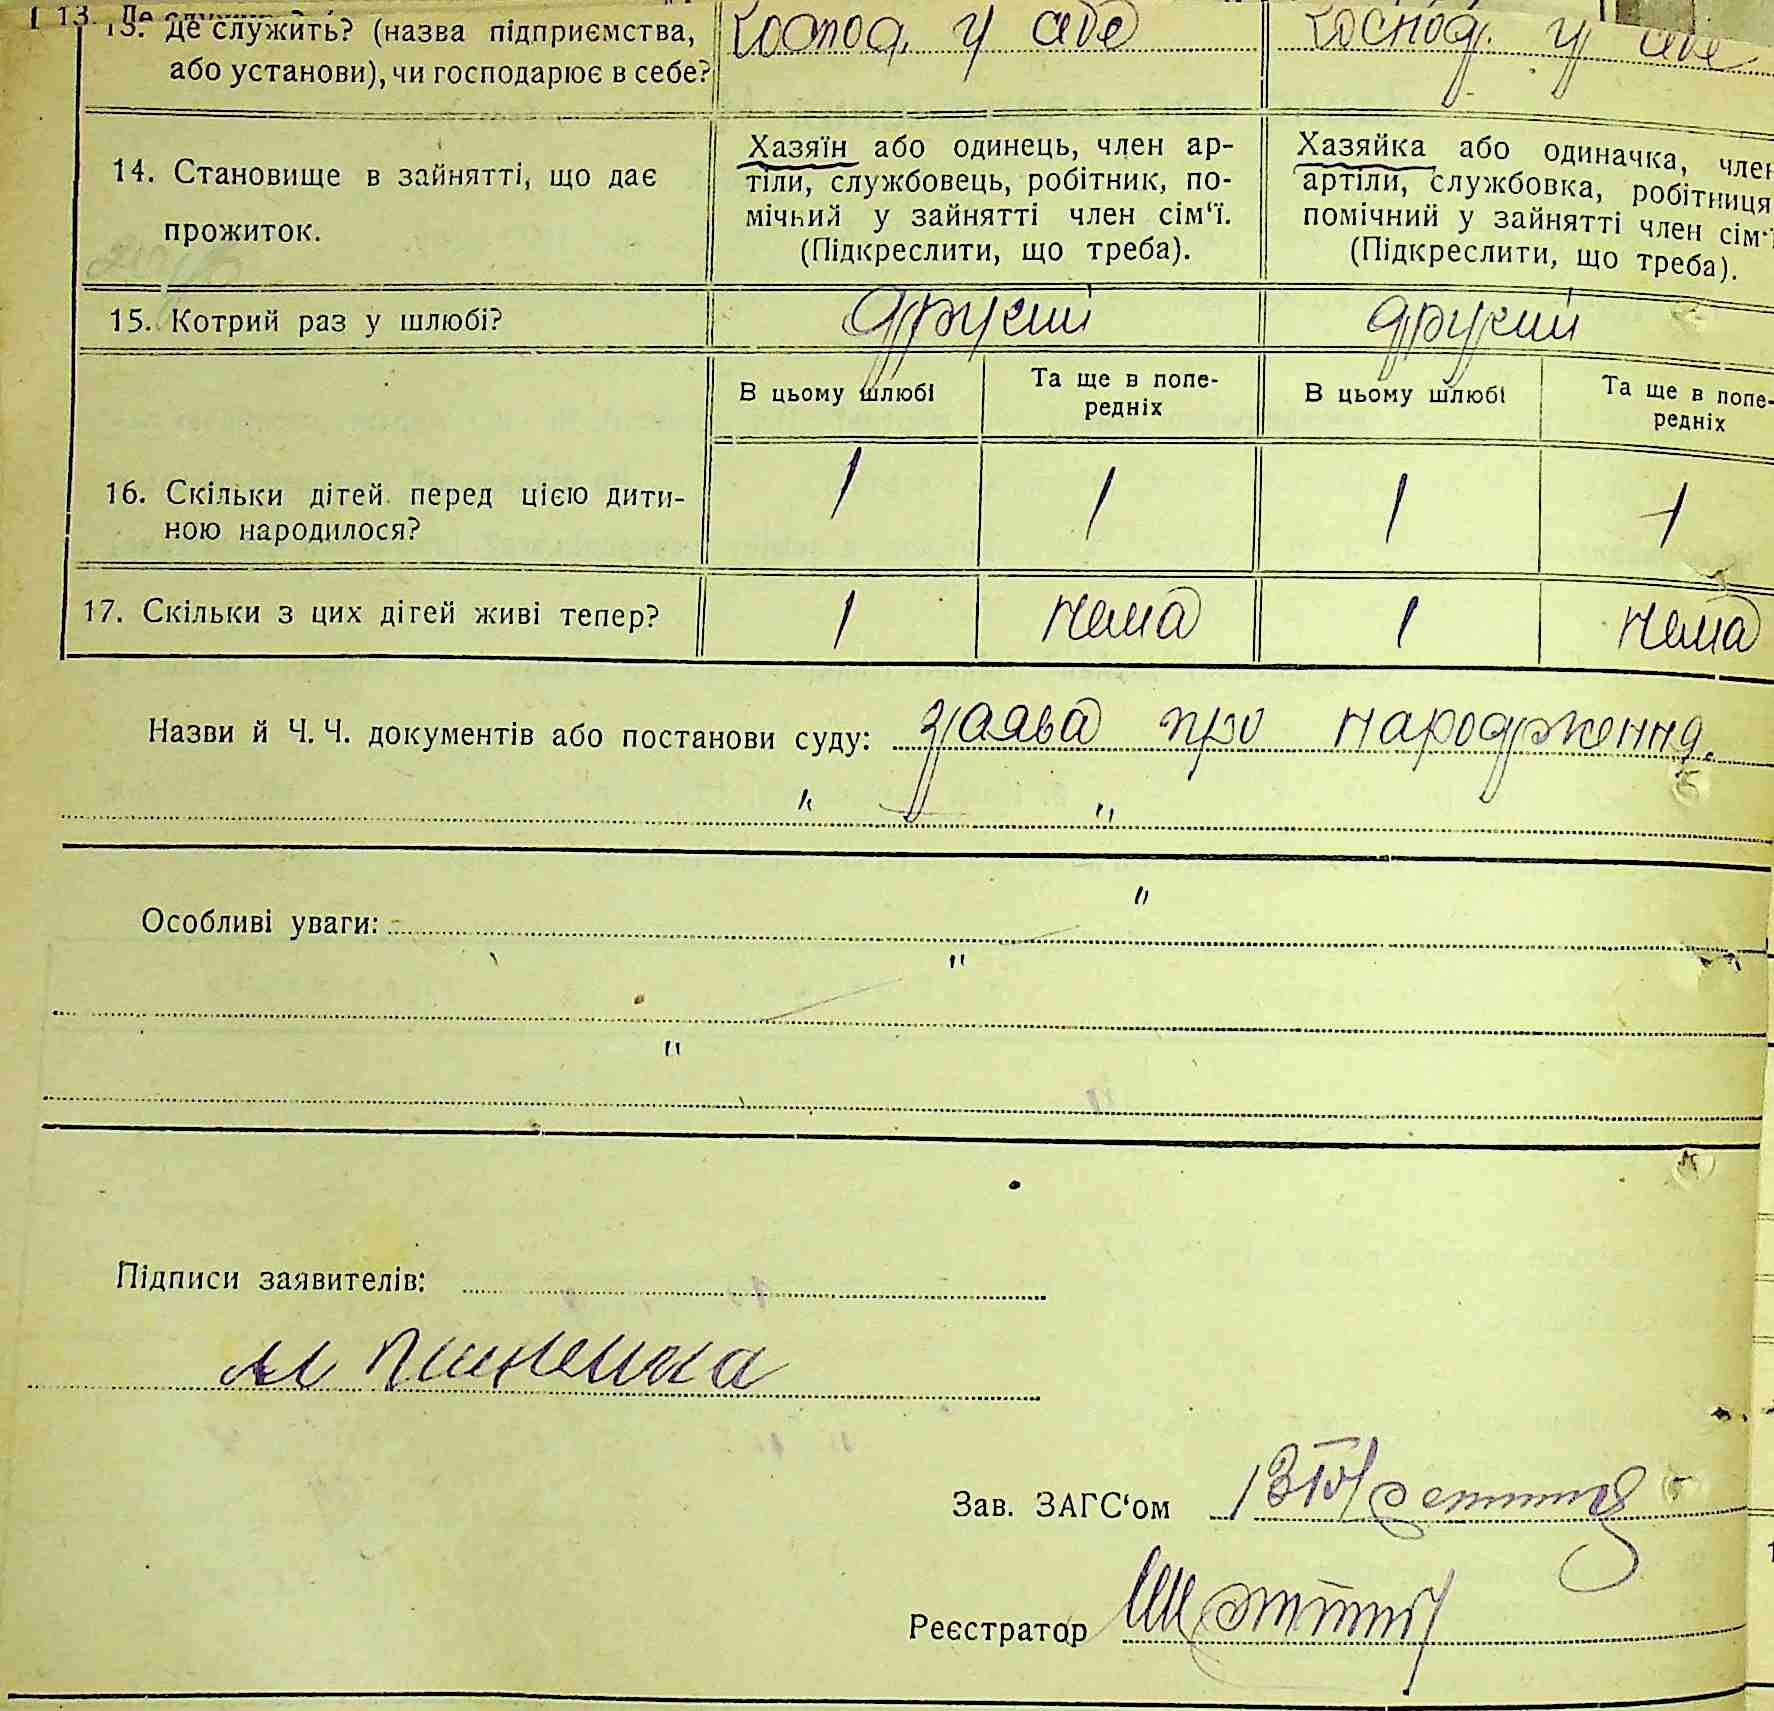 13. Де служить? (назва підприємства, або установи), чи господарює в себе? Господ. у себе Господ. у себе
14. Становище в зайнятті, що дає прожиток.
Хазяїн або одинець, член ар-
тіли, службовець, робітник, по-
мічний у зайнятті член сім‘ї.
(Підкреслити, що треба).
Хазяйка або одиначка, член
артіли, службовка, робітниця
помічний у зайнятті член сім‘ї
(Підкреслити, що треба).
15. Котрий раз у шлюбі? другий другий
В цьому шлюбі Та ще в попе-редніх В цьому шлюбі Та ще в попе-редніх
16. Скільки дітей перед цією дити-
ною народилося? 1 1 1 1
17. Скільки з цих дітей живі тепер? 1 нема 1 нема
Назви й Ч. Ч. документів або постанови суду: заява про народження.
" "
Особливі уваги: "
"
"
Підписи заявителів:
Зав. ЗАГС‘ом
Реєстратор